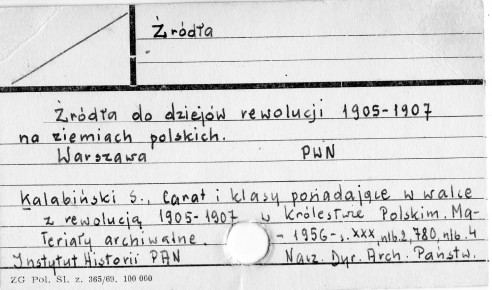 Źródła
Źródła do dziejów rewolucji 1905-1907
na ziemiach polskich.
Warszawa PWN
Kalabiński S., Carat i klasy posiadające w walce
z rewolucją 1905-1907 w Królestwie Polskim. Ma-
teriały archiwalne. - 1956 - s. XXX, nlb. 2, 780, nlb. 4
Instytut Historii PAN Nacz. Dyr. Arch. Państw.
ZG Pol. Śl. z. 365/69. 100 000